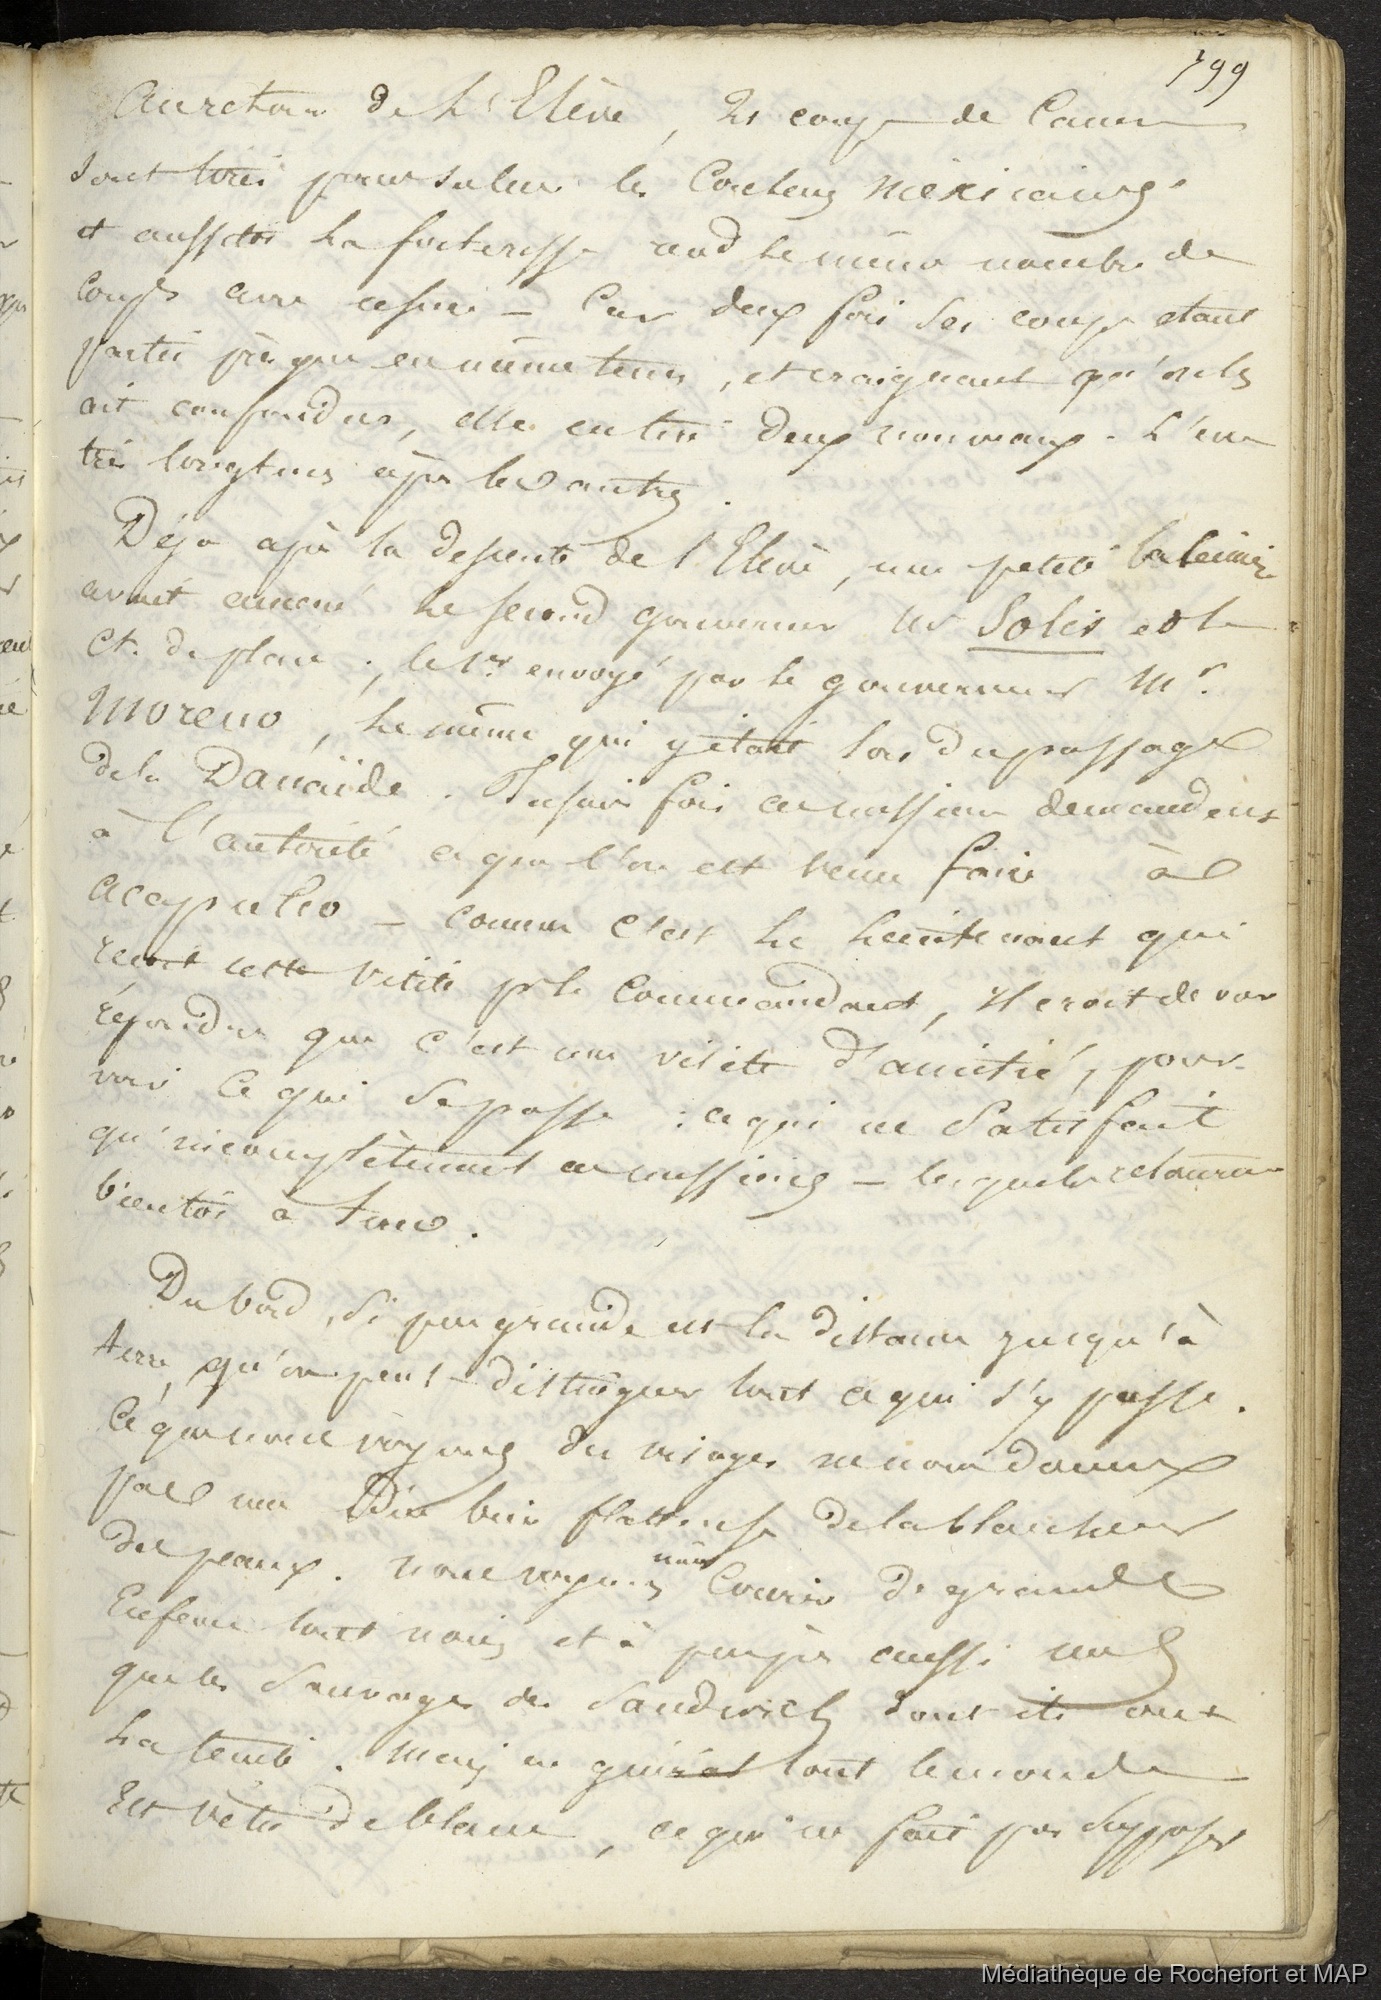 799
Au retour de l'Elève, 21 coups de Canon
sont tirés pour saluer les Couleurs mexicaines
et aussitôt la forteresse rend le même nombre de
coups avec usure – Car deux fois ses coups étant
partis presque en même tems, et craignant qu'on les
ait confondus, elle en tire deux nouveaux. L'un
très longtems après les autres.
Déja après la descente de l'Elève, une petite baleinière
avait amené le second gouverneur Mr Solis et le
Ct. de place; le 1er envoyé par le gouverneur Mr.
Moreno, le même qui y était lors du passage
de la Danaïde. Plusieurs fois ces messieurs demandent
à l'autorité ce que l'on est venu faire à
Acapulco – comme c'est le lieutenant qui
reçoit cette visite pr le Commandant, il croit devoir
répondre que c'est une visite d'amitié, pour
voir ce qui se passe : ce qui ne satisfait
qu'incomplètement ces messieurs – lesquels retournent
bientôt à terre.
Du bord, si peu grande est la distance jusqu'à
terre, qu'on peut distinguer tout ce qui s'y passe.
Ce que nous voyons des visages ne nous donne
pas une idée bien flatteuse de la blancheur
des peaux. nous voyons même courir de grands
Enfans tout noirs et à peu près aussi nuds
que les Sauvages des Sandwich dont ils ont
la teinte. Mais en général tout le monde
Est vêtu de blanc, ce qui ne fait pas supposer
Médiathèque de Rochefort et MAP